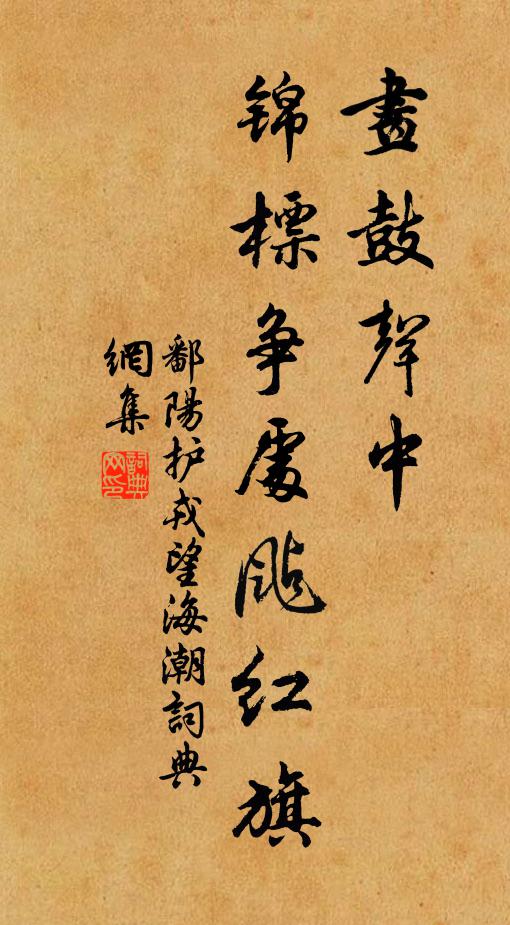 畫鼓聲中
錦標爭處颭紅旗
鄱陽护戎望海潮詞典
網集
詞典
网印